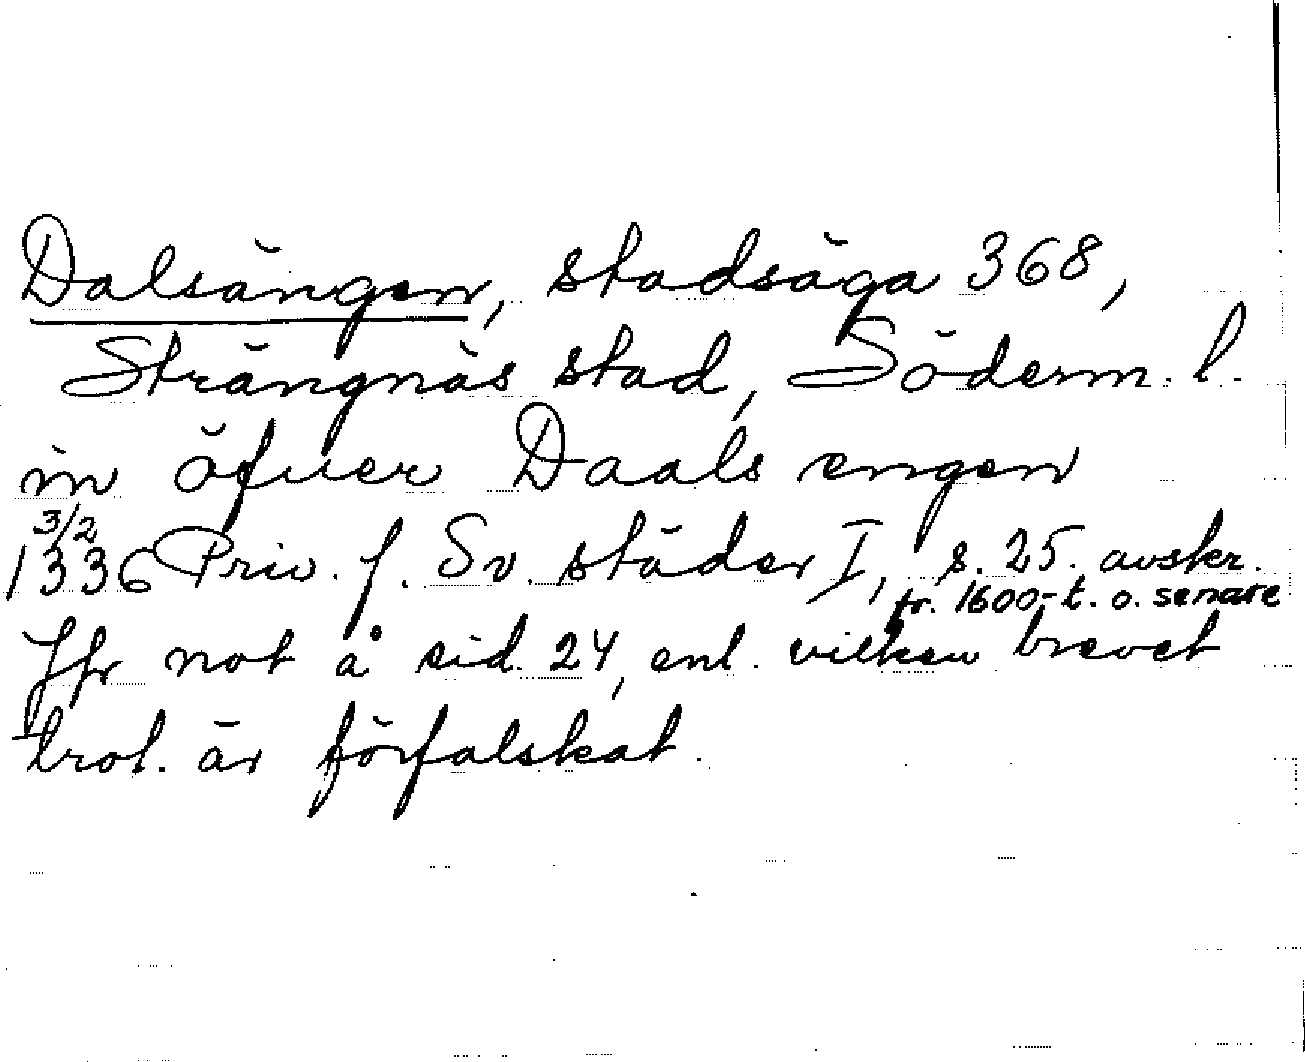 Dalsängen, stadsäga 368,
Strängnäs stad, Söderm. l.
in öfuer Daals engen
3/2
1336 Priv. f. Sv. städer I, s. 25. avskr.
fr. 1600-t. o. senare
Jfr not å sid. 24, enl. vilken brevet
trol. är förfalskat.